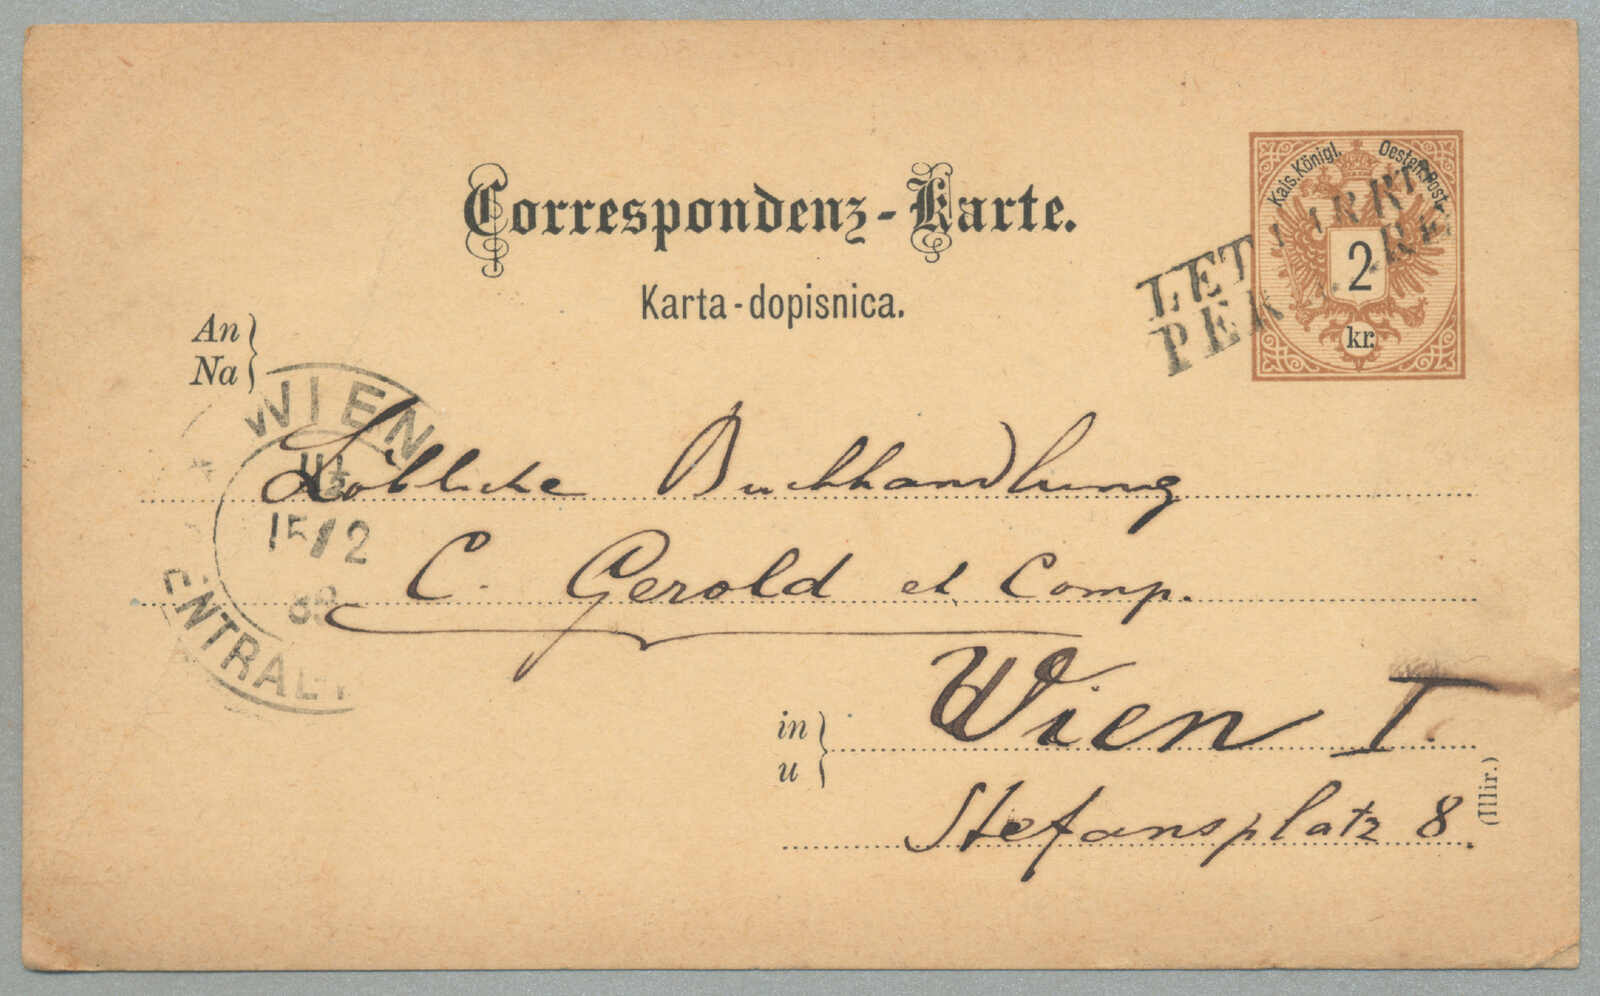 Correspondenz-Karte.
Karta-dopisnica.
Kais. Königl. Oesterr. Post
2
kr.
LET
PER
An
Na
WIEN
11½
15/2
ENTRAL
Löbliche Buchhandlung
C. Gerold et Comp.
in
u
Wien I.
Stefansplatz 8.
(Illir.)